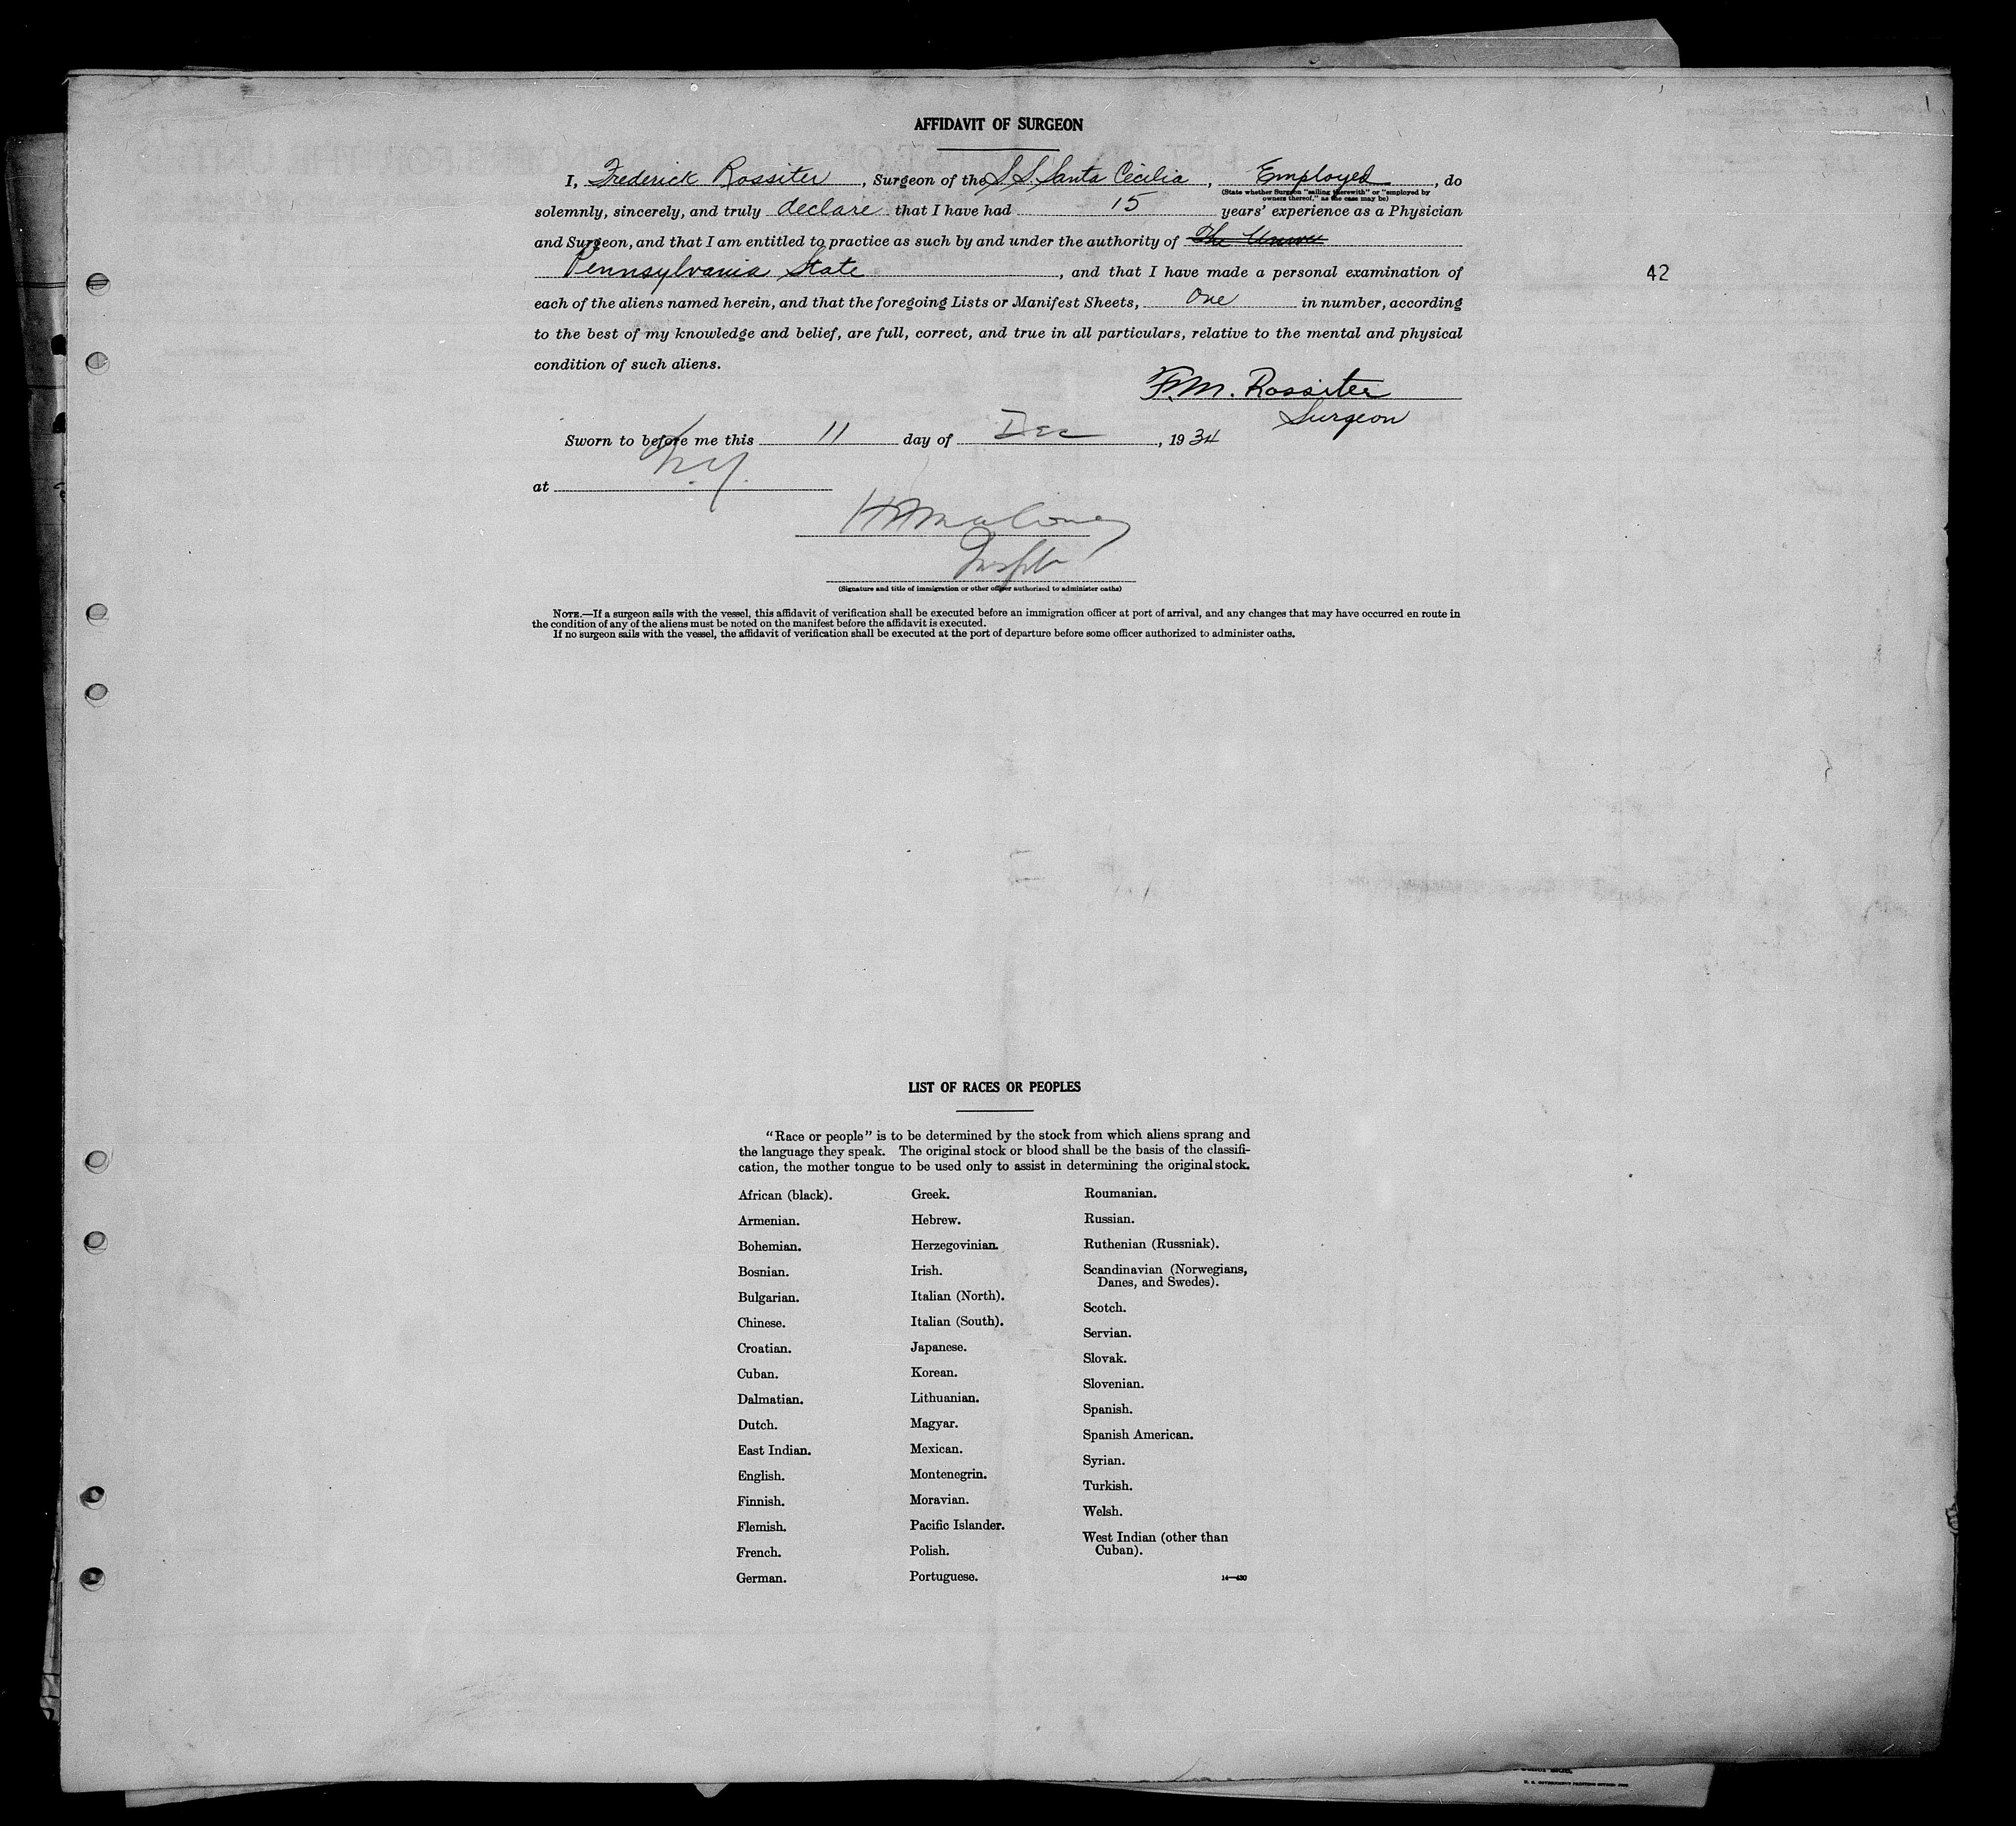 AFFIDAVIT OF SURGEON
I, Frederick Rossiter, Surgeon of the S.S. Santa Cecilia, Employed, do
(State whether Surgeon "sailing therewith" or "employed by
owners thereof," as the case may be)
solemnly, sincerely, and truly declare that I have had 15 years' experience as a Physician
and Surgeon, and that I am entitled to practice as such by and under the authority of The
Pennsylvania State, and that I have made a personal examination of
42
each of the aliens named herein, and that the foregoing Lists or Manifest Sheets, One in number, according
to the best of my knowledge and belief, are full, correct, and true in all particulars, relative to the mental and physical
condition of such aliens.
F.M. Rossiter
Surgeon
Sworn to before me this 11 day of Dec, 1934
at N.Y.
Maloney
Inspt
(Signature and title of immigration or other officer authorized to administer oaths)
NOTE.—If a surgeon sails with the vessel, this affidavit of verification shall be executed before an immigration officer at port of arrival, and any changes that may have occurred en route in
the condition of any of the aliens must be noted on the manifest before the affidavit is executed.
If no surgeon sails with the vessel, the affidavit of verification shall be executed at the port of departure before some officer authorized to administer oaths.
LIST OF RACES OR PEOPLES
"Race or people" is to be determined by the stock from which aliens sprang and
the language they speak. The original stock or blood shall be the basis of the classifi-
cation, the mother tongue to be used only to assist in determining the original stock.
African (black).
Armenian.
Bohemian.
Bosnian.
Bulgarian.
Chinese.
Croatian.
Cuban.
Dalmatian.
Dutch.
East Indian.
English.
Finnish.
Flemish.
French.
German.
Greek.
Hebrew.
Herzegovinian.
Irish.
Italian (North).
Italian (South).
Japanese.
Korean.
Lithuanian.
Magyar.
Mexican.
Montenegrin.
Moravian.
Pacific Islander.
Polish.
Portuguese.
Roumanian.
Russian.
Ruthenian (Russniak).
Scandinavian (Norwegians,
Danes, and Swedes).
Scotch.
Servian.
Slovak.
Slovenian.
Spanish.
Spanish American.
Syrian.
Turkish.
Welsh.
West Indian (other than
Cuban).
14—430